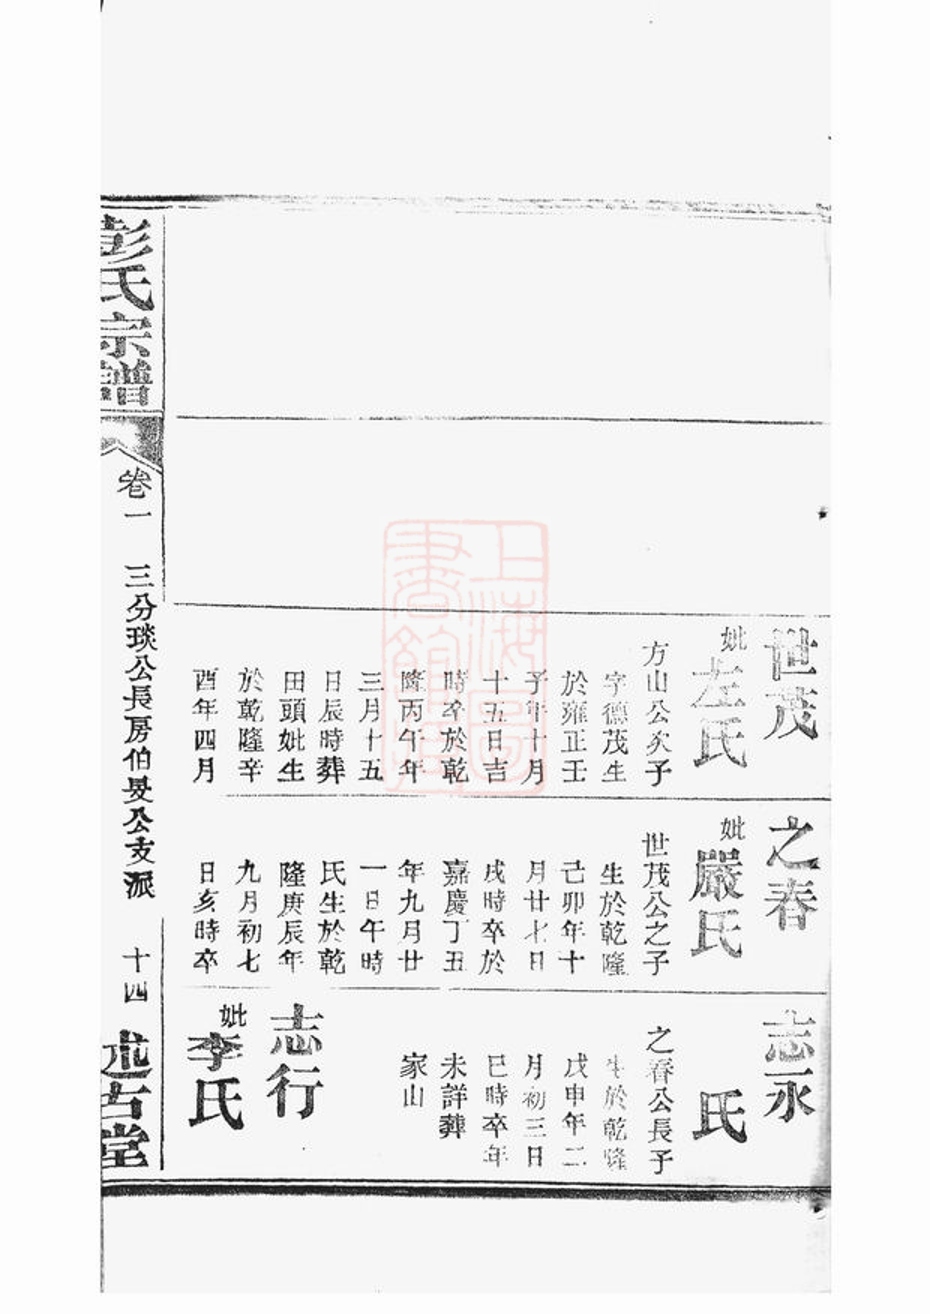 世茂
妣左氏
方山公次子
字德茂生
於雍正壬
子年十月
十五日吉
時卒於乾
隆丙午年
三月十五
日辰時葬
田頭妣生
於乾隆辛
酉年四月
之春
妣嚴氏
世茂公之子
生於乾隆
己卯年十
月廿七日
戌時卒於
嘉慶丁丑
年九月廿
一日午時
氏生於乾
隆庚辰年
九月初七
日亥時卒
志永
氏
之春公長子
生於乾隆
戊申年二
月初三日
巳時卒年
未詳葬
家山
志行
妣李氏
彭氏宗譜
卷一
三分琰公長房伯旻公支派
十四
述古堂
上海圖書館藏